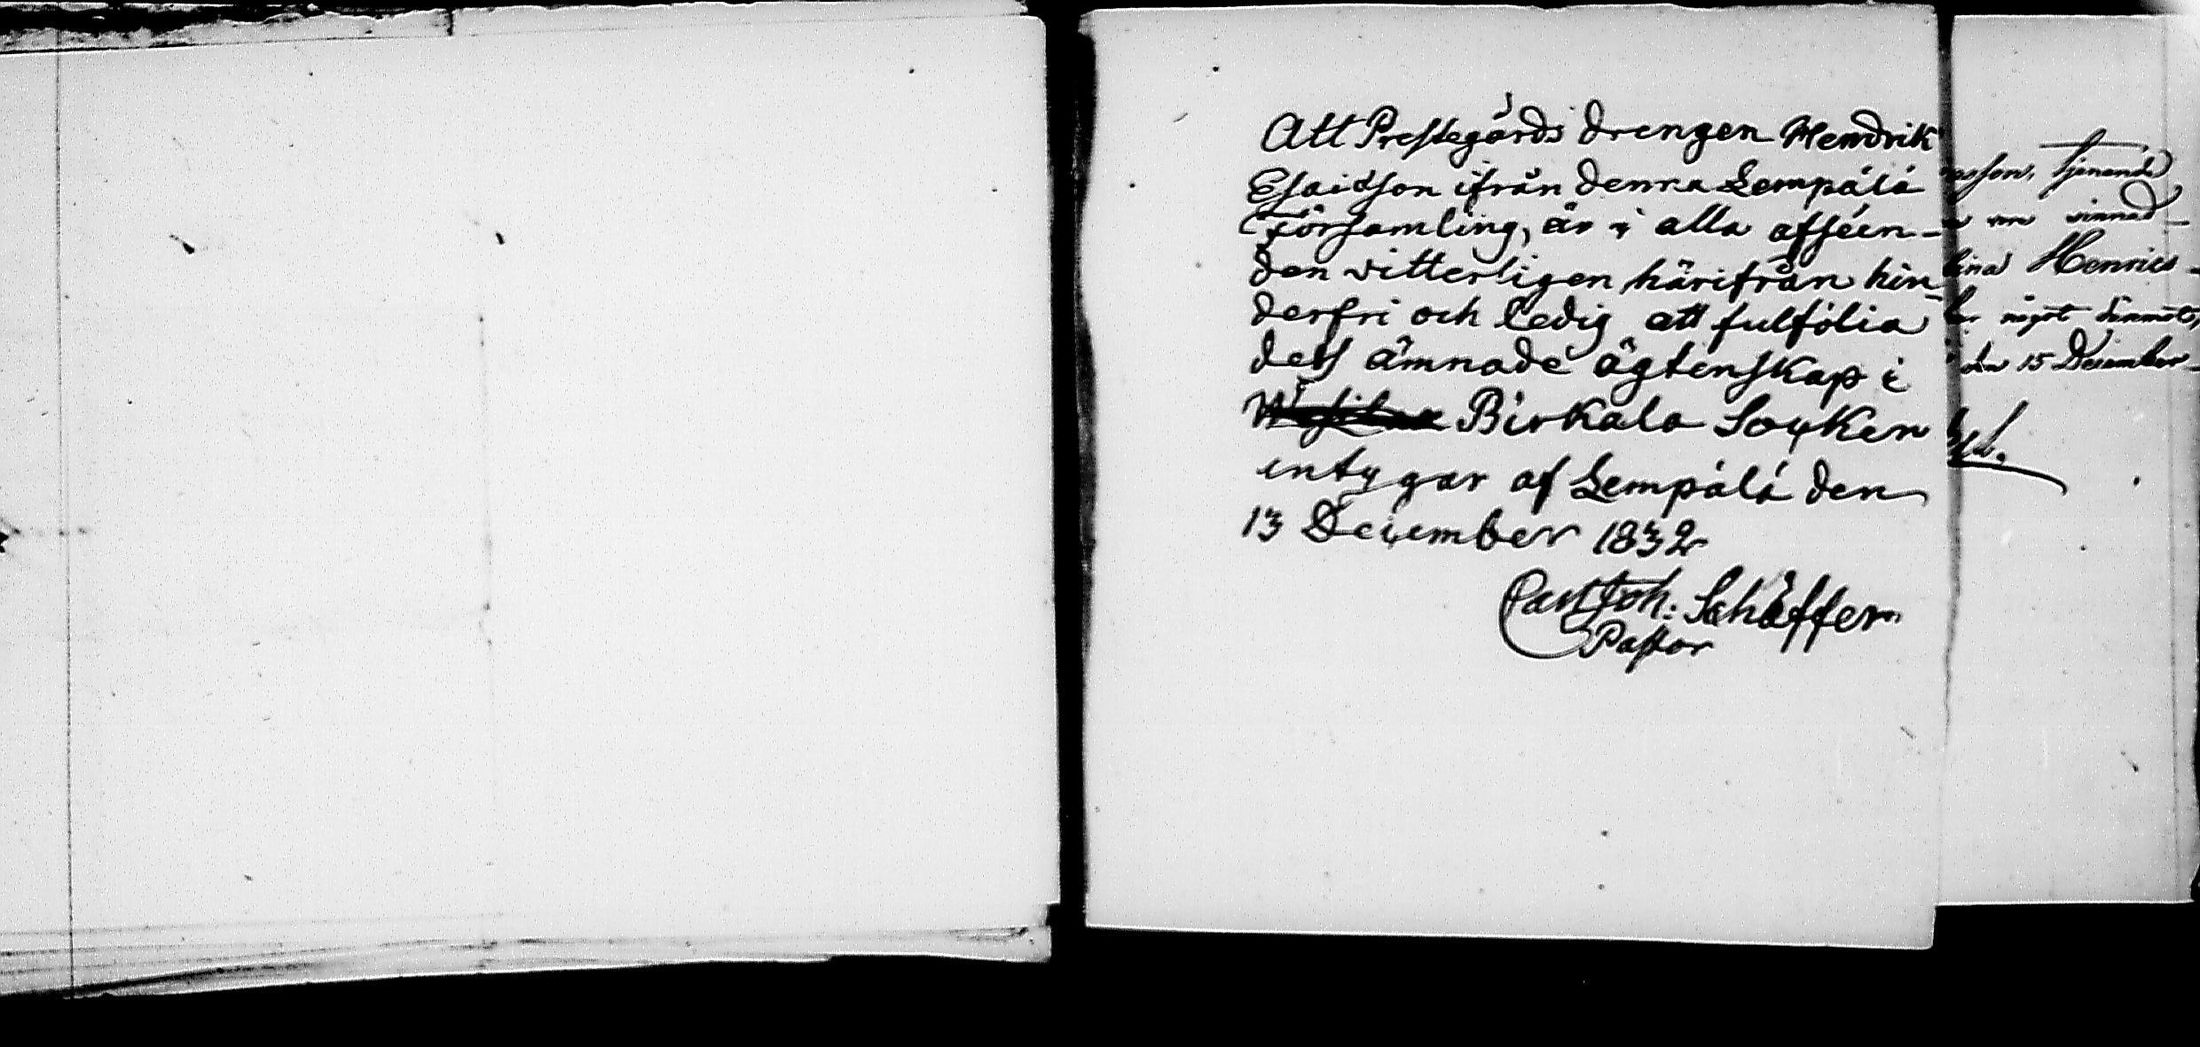 Att Prestegårds drengen Hendrik
Esaidson ifrån denna Lempälä
Församling, är i alla afséen-
den vitterligen härifrån hin-
derfri och ledig att fulfölia
dess ämnade ägtenskap i
Birkala Socken
intygar af Lempälä den
13 December 1832
Joh: Schäffer
Pastor
son, tjenande
Henrics-
något
den 15 December